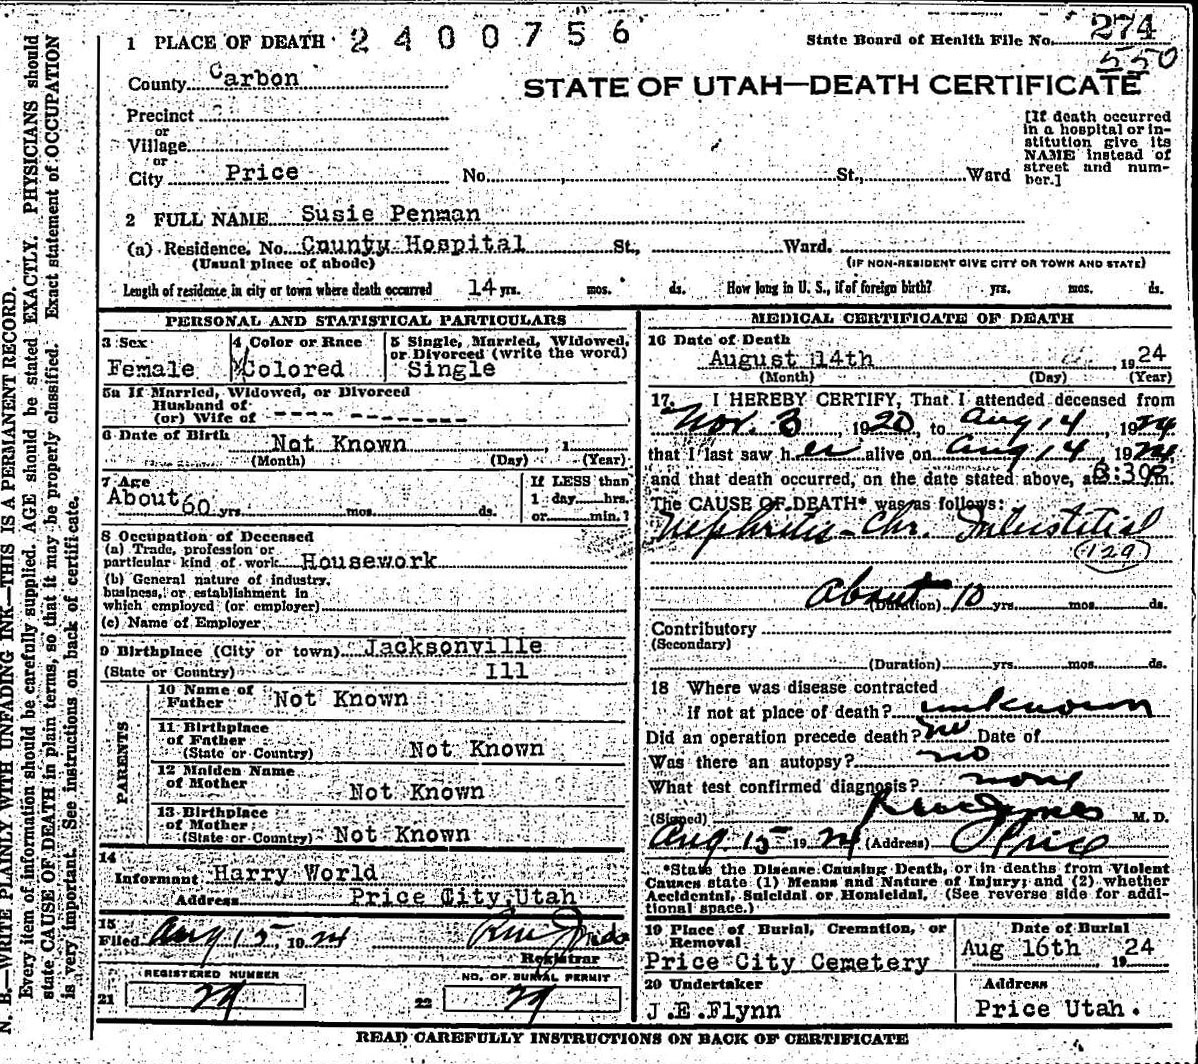 1 PLACE OF DEATH 2400756
State Board of Health File No. 274
550
County Carbon
STATE OF UTAH—DEATH CERTIFICATE
Precinct
or
Village
or
City Price No. , St., Ward
[If death occurred in a hospital or institution give its NAME instead of street and number.]
2 FULL NAME Susie Penman
(a) Residence, No. County Hospital St., Ward.
(Usual place of abode) (IF NON-RESIDENT GIVE CITY OR TOWN AND STATE)
Length of residence in city or town where death occurred 14 yrs. mos. ds. How long in U. S., if of foreign birth? yrs. mos. ds.
PERSONAL AND STATISTICAL PARTICULARS
3 Sex
Female
4 Color or Race
Colored
5 Single, Married, Widowed, or Divorced (write the word)
Single
5a If Married, Widowed, or Divorced
Husband of
(or) Wife of
6 Date of Birth Not Known , 1
(Month) (Day) (Year)
7 Age
About 60 yrs. mos. ds.
If LESS than
1 day hrs.
or min.?
8 Occupation of Deceased
(a) Trade, profession or
particular kind of work Housework
(b) General nature of industry,
business, or establishment in
which employed (or employer)
(c) Name of Employer
9 Birthplace (City or town) Jacksonville
(State or Country) Ill
PARENTS
10 Name of
Father Not Known
11 Birthplace
of Father
(State or Country) Not Known
12 Maiden Name
of Mother Not Known
13 Birthplace
of Mother
(State or Country) Not Known
14
Informant Harry World
Address Price City, Utah
15
Filed Aug 15, 1924
Registrar
REGISTERED NUMBER
21 79
NO. OF BURIAL PERMIT
22 79
MEDICAL CERTIFICATE OF DEATH
16 Date of Death
August 14th , 1924
(Month) (Day) (Year)
17 I HEREBY CERTIFY, That I attended deceased from
Nov. 3 , 1920, to Aug 14 , 1924
that I last saw her alive on Aug 14 , 1924
and that death occurred, on the date stated above, at 8:30 P.m.
The CAUSE OF DEATH* was as follows:
Nephritis - Chr. Interstitial
129
About (Duration) 10 yrs. mos. ds.
Contributory
(Secondary)
(Duration) yrs. mos. ds.
18 Where was disease contracted
if not at place of death? unknown
Did an operation precede death? no Date of
Was there an autopsy? no
What test confirmed diagnosis? none
(Signed) M. D.
Aug 15 1924 (Address) Price
*State the Disease Causing Death, or in deaths from Violent
Causes state (1) Means and Nature of Injury; and (2) whether
Accidental, Suicidal or Homicidal. (See reverse side for addi-
tional space.)
19 Place of Burial, Cremation, or
Removal
Price City Cemetery
Date of Burial
Aug 16th , 1924
20 Undertaker
J.E.Flynn
Address
Price Utah.
READ CAREFULLY INSTRUCTIONS ON BACK OF CERTIFICATE
N. B.—WRITE PLAINLY WITH UNFADING INK—THIS IS A PERMANENT RECORD.
Every item of information should be carefully supplied. AGE should be stated EXACTLY. PHYSICIANS should
state CAUSE OF DEATH in plain terms, so that it may be properly classified. Exact statement of OCCUPATION
is very important. See instructions on back of certificate.